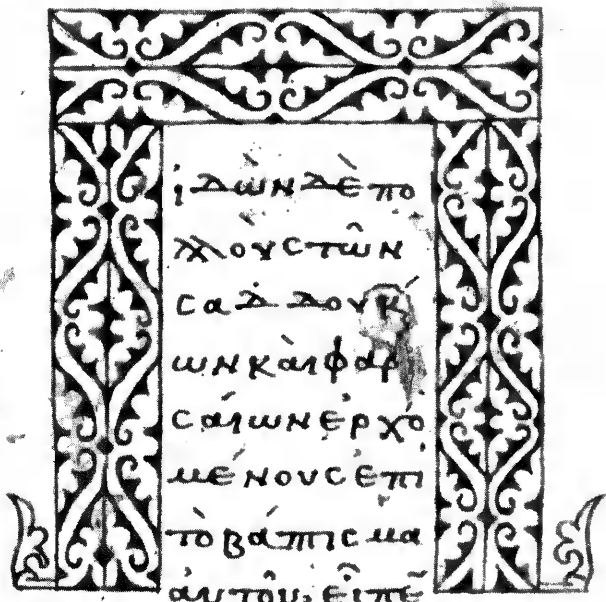 ἰδὼν δὲ πο
λλοὺς τῶν
σαδδουκ
ων καὶ φαρ
σαίων ἐρχο
μένους ἐπι
τὸ βάπτισμα
αὐτοῦ, εἶπε̄